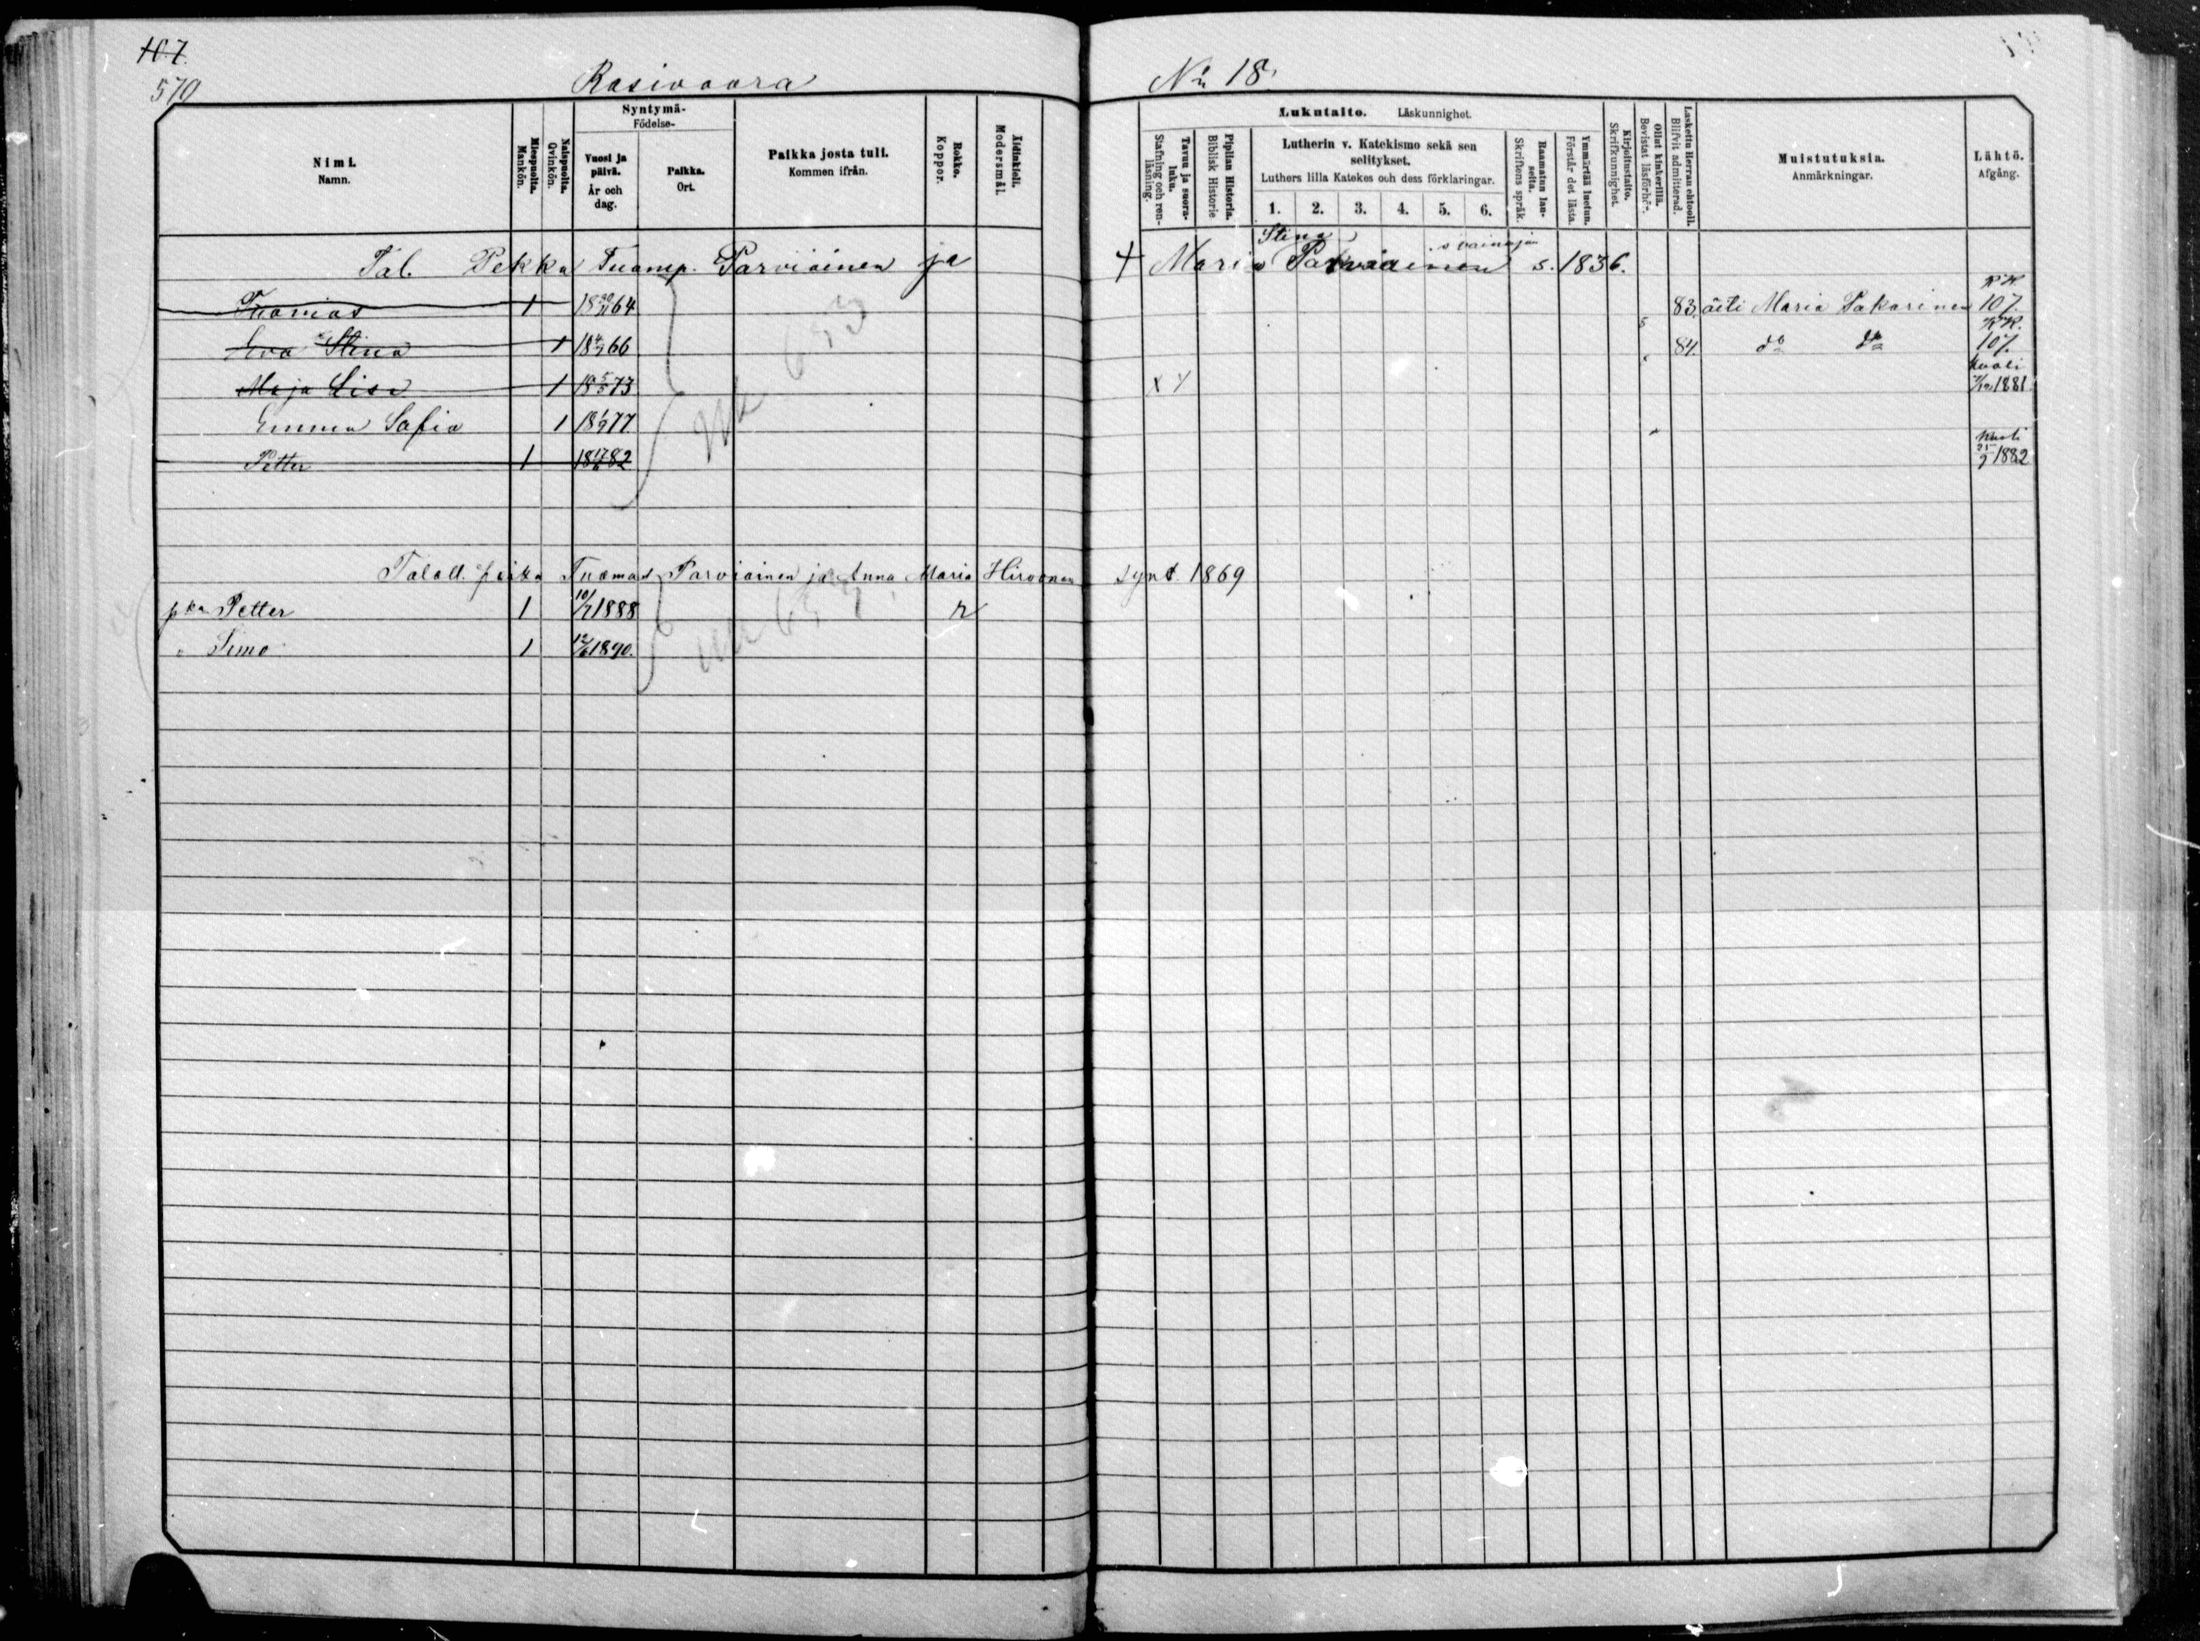 107.
570
Rasivaara
No 18.
Nimi.
Namn.
Miespuolia.
Mankön.
Naispuolia.
Qvinkön.
Syntymä-
Födelse-
Vuosi ja
päivä.
År och
dag.
Paikka.
Ort.
Paikka josta tuli.
Kommen ifrån.
Rokko.
Koppor.
Äidinkieli.
Modersmål.
Lukutaito. Läskunnighet.
Tavuu ja suora-
luku.
Stafning och ren-
läsning.
Piplian Historia.
Biblisk Historie
Lutherin v. Katekismo sekä sen
selitykset.
Luthers lilla Katekes och dess förklaringar.
1. 2. 3. 4. 5. 6.
Raamatun lau-
seita.
Skriftens språk.
Ymmärtää luetun.
Förstår det lästa.
Kirjoitustaito.
Skrifkunnighet.
Ollut kinkerillä.
Bevistat läsförhör.
Laskettu Herran ehtooll.
Blifvit admitterad.
Muistutuksia.
Anmärkningar.
Lähtö.
Afgång.
Tal. Pekka Tuomp. Parviainen ja
Stina
Maria Parviainen s. 1836.
Tuomas 1 18 64 83. äiti Maria Pakarinen RK 107.
Eva Stina 1 18 66 84. do do RK. 107.
Maja Lisa 1 18 5/5 73 x kuoli /12 1881.
Emma Sofia 1 18 77
Petter 1 18 82 kuoli 25/9 1882
653
Taloll. poika Tuomas Parviainen ja Anna Maria Hirvonen synt. 1869
pka Petter 1 10/7 1888 r
" Simo 1 12/6 1890.